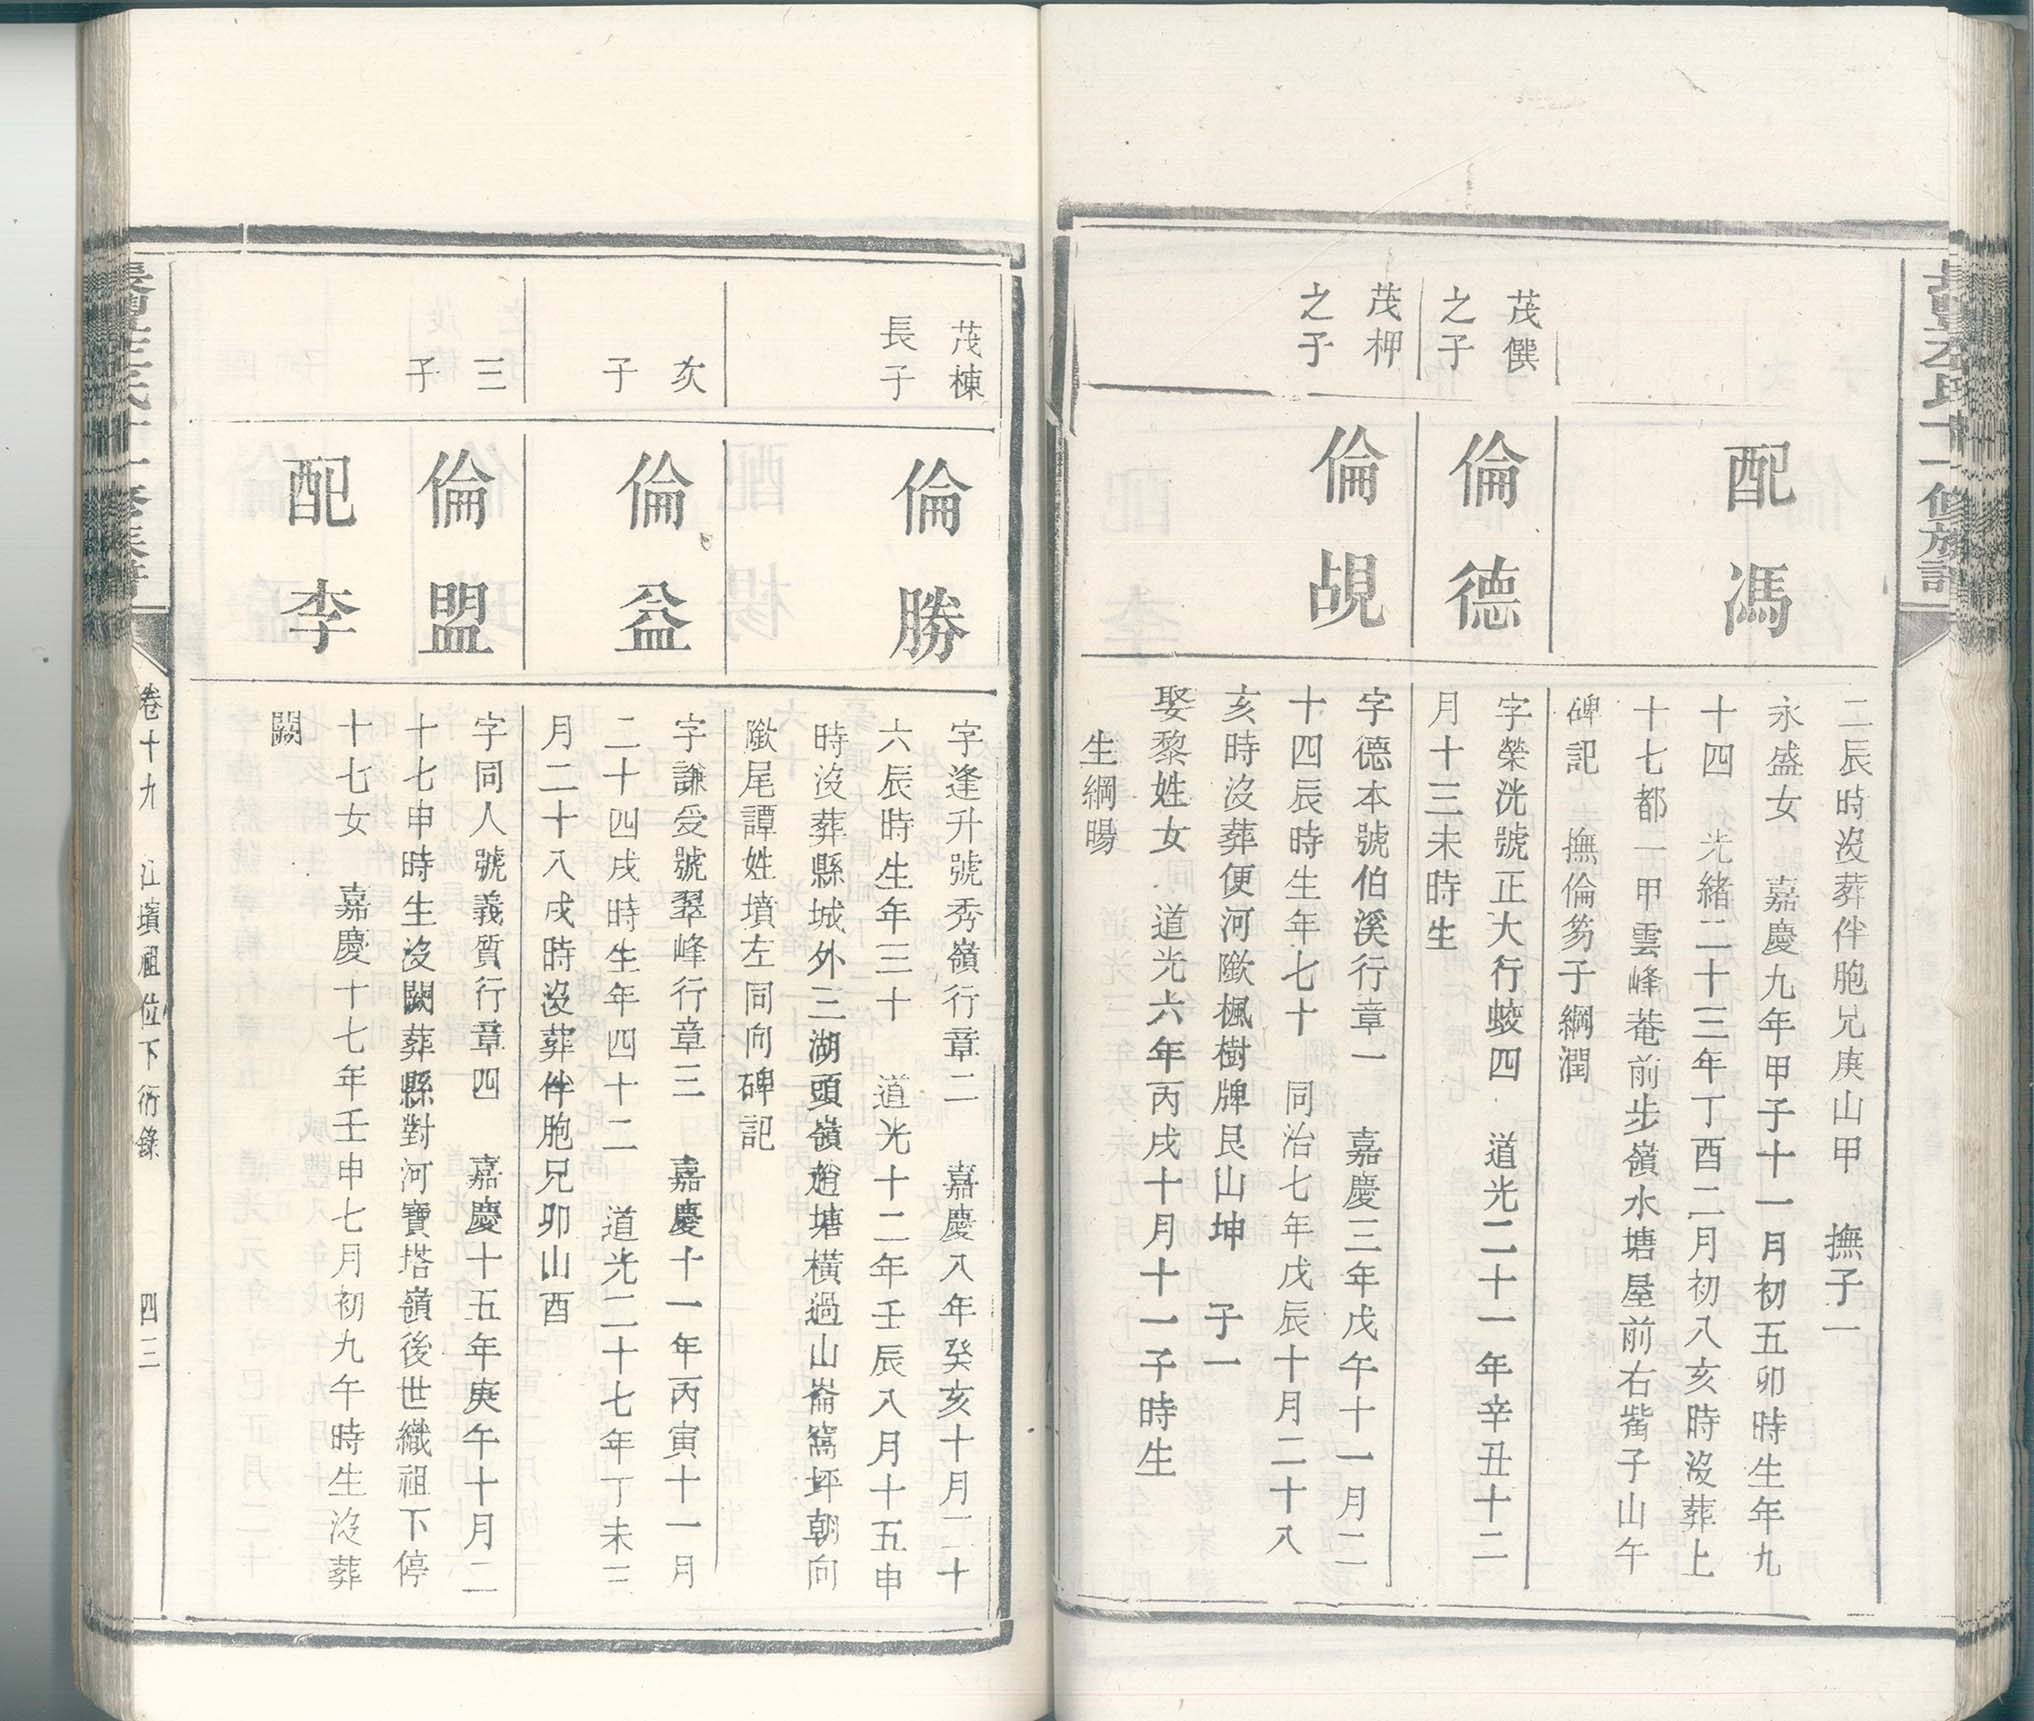 二辰時沒葬伴胞兄庚山甲　撫子一
配馮
永盛女　嘉慶九年甲子十一月初五卯時生年九
十四　光緒二十三年丁酉二月初八亥時沒葬上
十七都一甲雲峰菴前步嶺水塘屋前右觜子山午
碑記　撫倫芴子綱潤
茂僎
之子
倫德
字榮洸號正大行蛟四　道光二十一年辛丑十二
月十三未時生
茂柙
之子
倫覘
字德本號伯溪行章一　嘉慶三年戊午十一月二
十四辰時生年七十　同治七年戊辰十月二十八
亥時沒葬便河隞楓樹牌艮山坤　子一
娶黎姓女　道光六年丙戌十月十一子時生
生綱暘
茂棟
長子
倫勝
字逢升號秀嶺行章二　嘉慶八年癸亥十月二十
六辰時生年三十　道光十二年壬辰八月十五申
時沒葬縣城外三湖頭嶺塘橫過山崙窩坪朝向
隞尾譚姓墳左同向碑記
次
子
倫益
字謙受號翠峰行章三　嘉慶十一年丙寅十一月
二十四戌時生年四十二　道光二十七年丁未三
月二十八戌時沒葬伴胞兄卯山酉
三
子
倫盟
字同人號義質行章四　嘉慶十五年庚午十月二
十七申時生沒闕葬縣對河寶塔嶺後世織祖下停
配李
十七女　嘉慶十七年壬申七月初九午時生沒葬
闕
卷十九　江墳祖位下衍錄　四三